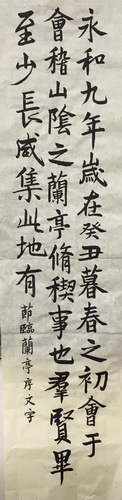 永和九年歲在癸丑暮春之初會于
會稽山陰之蘭亭脩稧事也羣賢畢
至少長咸集此地有
節臨蘭亭序文字